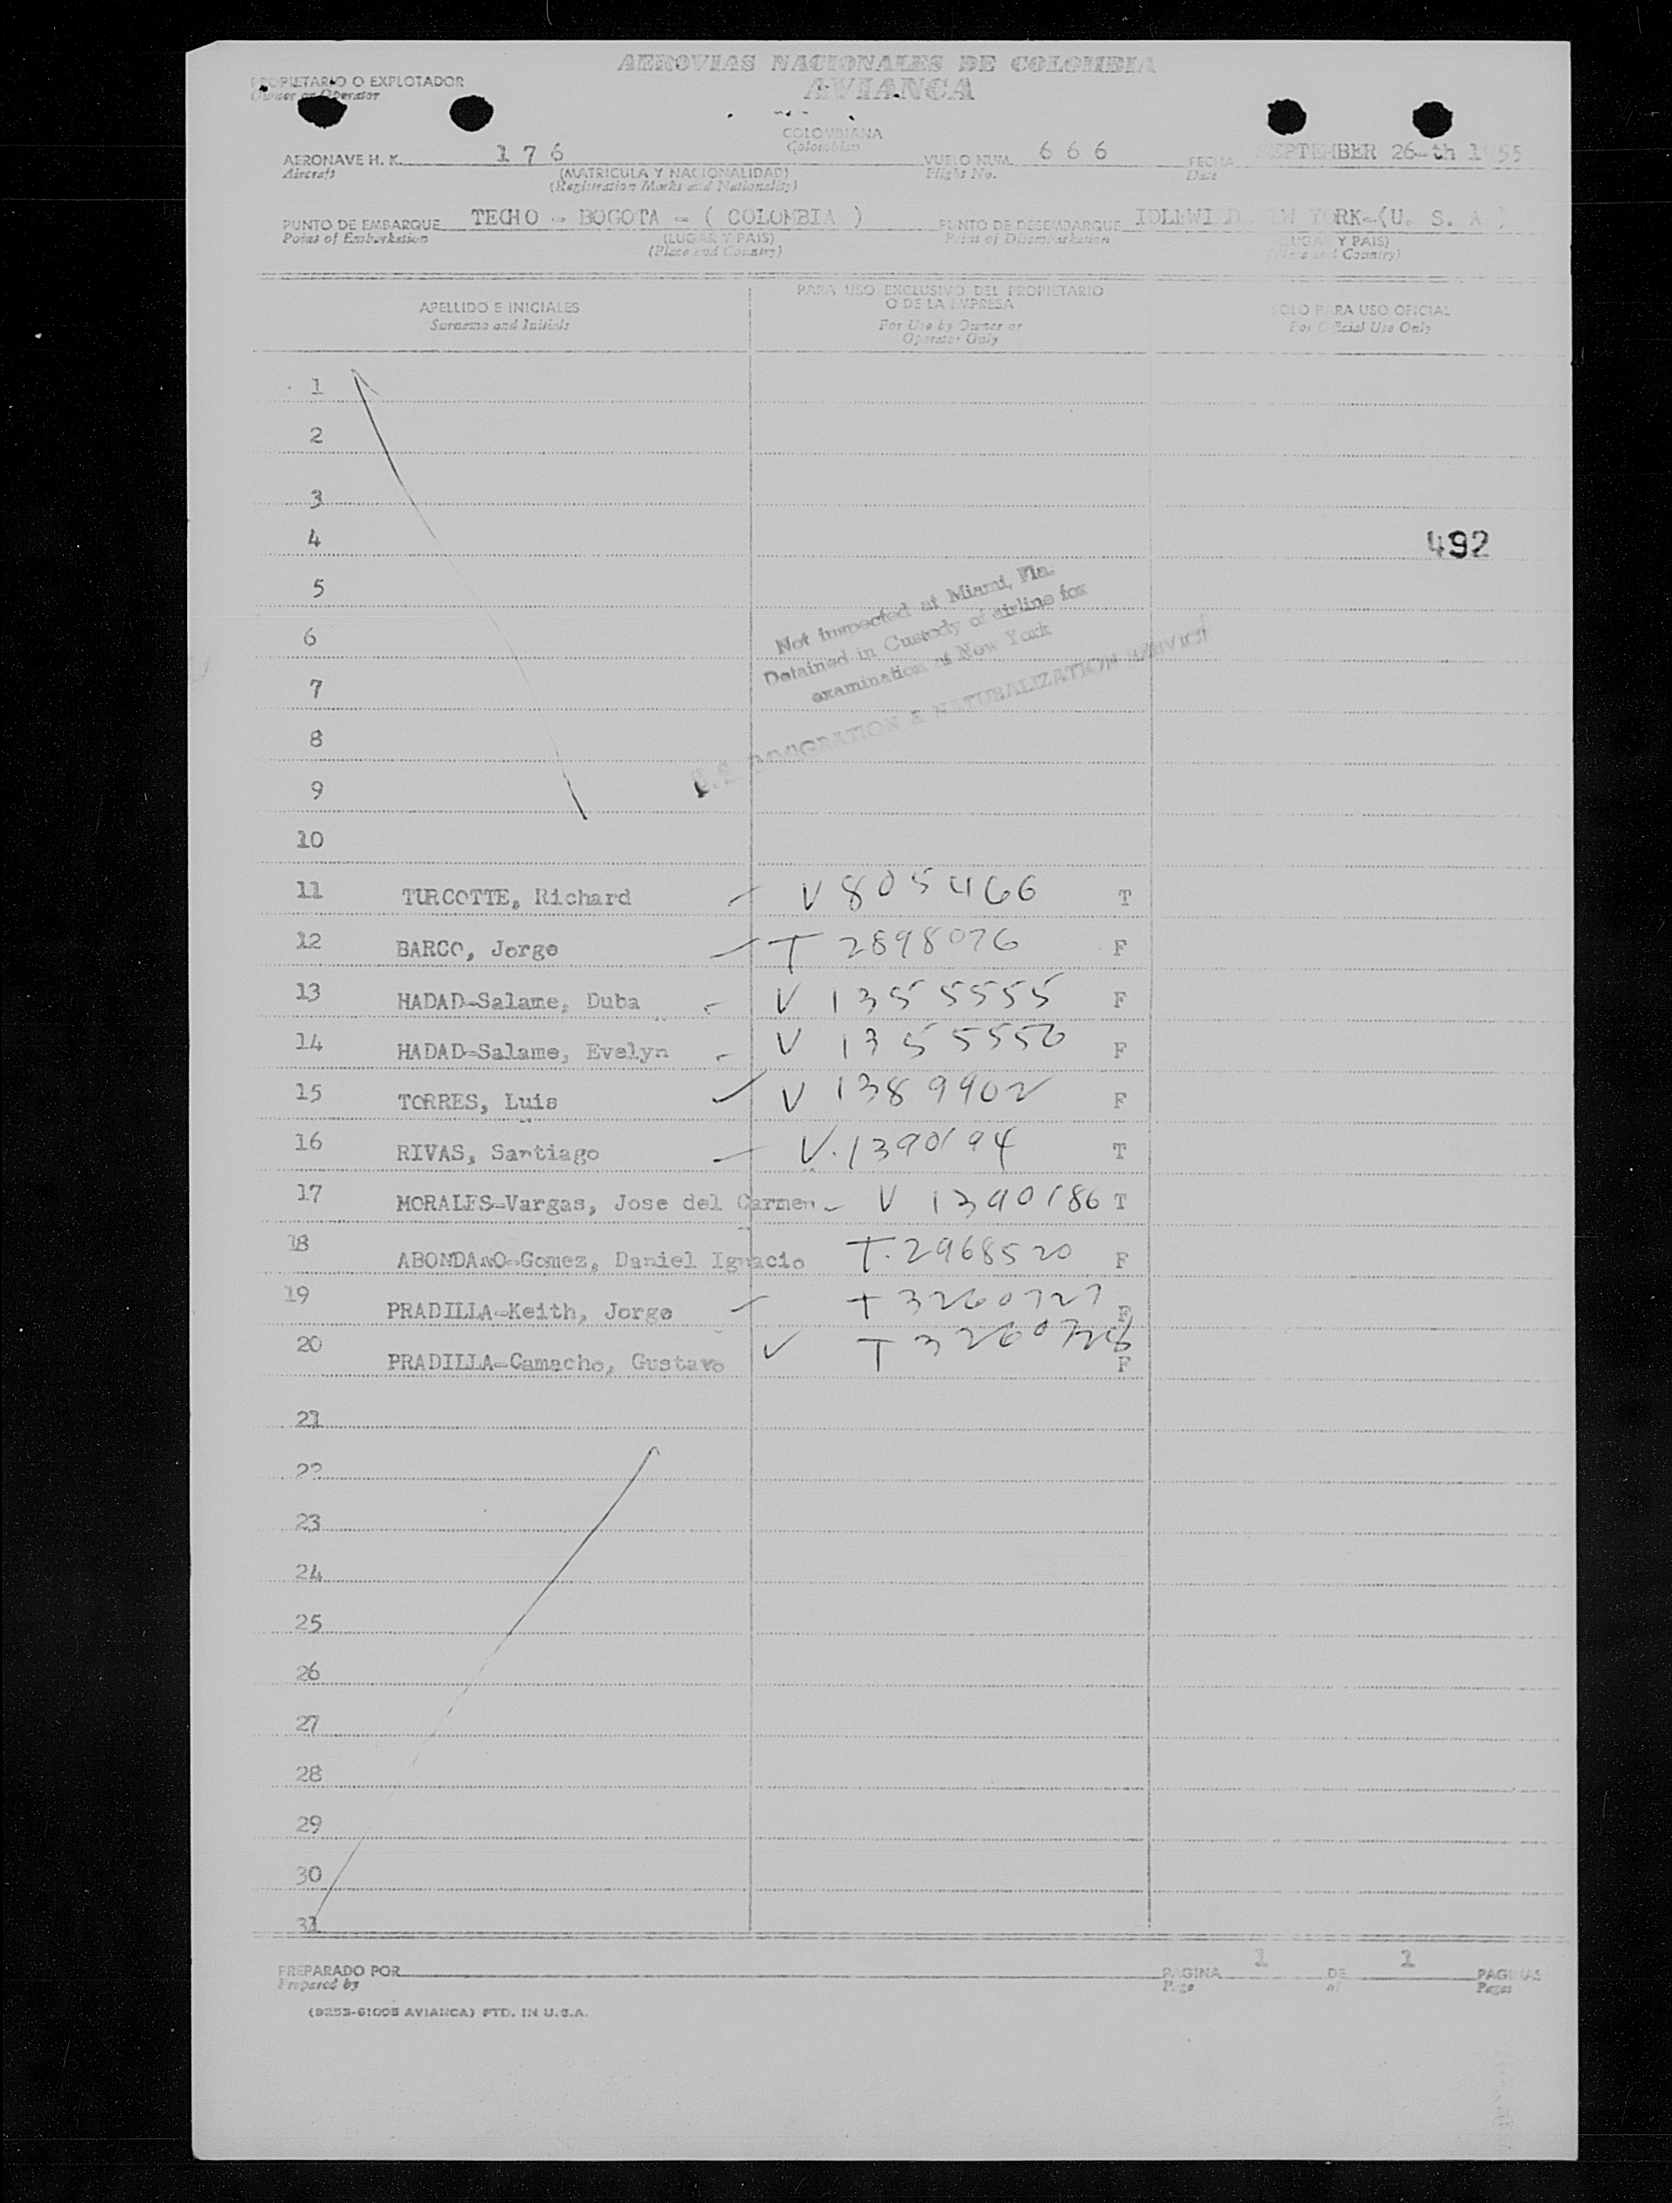 AEROVIAS NACIONALES DE COLOMBIA
AVIANCA
PROPIETARIO O EXPLOTADOR
Owner or Operator
COLOMBIANA
Colombian
AERONAVE H. K. 176 VUELO NUM. 666 FECHA SEPTEMBER 26-th 1955
Aircraft (MATRICULA Y NACIONALIDAD) Flight No. Date
(Registration Marks and Nationality)
PUNTO DE EMBARQUE TECHO - BOGOTA - ( COLOMBIA ) PUNTO DE DESEMBARQUE IDLEWILD YORK-(U. S. A )
Point of Embarkation (LUGAR Y PAIS) Point of Disembarkation (LUGAR Y PAIS)
(Place and Country) (Place and Country)
APELLIDO E INICIALES
Surname and Initials
PARA USO EXCLUSIVO DEL PROPIETARIO
O DE LA EMPRESA
For Use by Owner or
Operator Only
SOLO PARA USO OFICIAL
For Official Use Only
1
2
3
4 492
5
6
7
8
9
10
Not inspected at Miami, Fla.
Detained in Custody of airline for
examination at New York
U.S. IMMIGRATION & NATURALIZATION SERVICE
11 TURCOTTE, Richard V 805466 T
12 BARCO, Jorge T 2898076 F
13 HADAD-Salame, Duba V 1355555 F
14 HADAD-Salame, Evelyn V 1355556 F
15 TORRES, Luis V 1389902 F
16 RIVAS, Santiago V.1390194 T
17 MORALES-Vargas, Jose del Carmen V 1390186 T
18 ABONDANO-Gomez, Daniel Ignacio T.2968520 F
19 PRADILLA-Keith, Jorge T 3260727 F
20 PRADILLA-Camacho, Gustavo T 3260726 F
21
22
23
24
25
26
27
28
29
30
31
PREPARADO POR PAGINA 1 DE 1 PAGINAS
Prepared by Page of Pages
(8253-61005 AVIANCA) PTD. IN U.S.A.